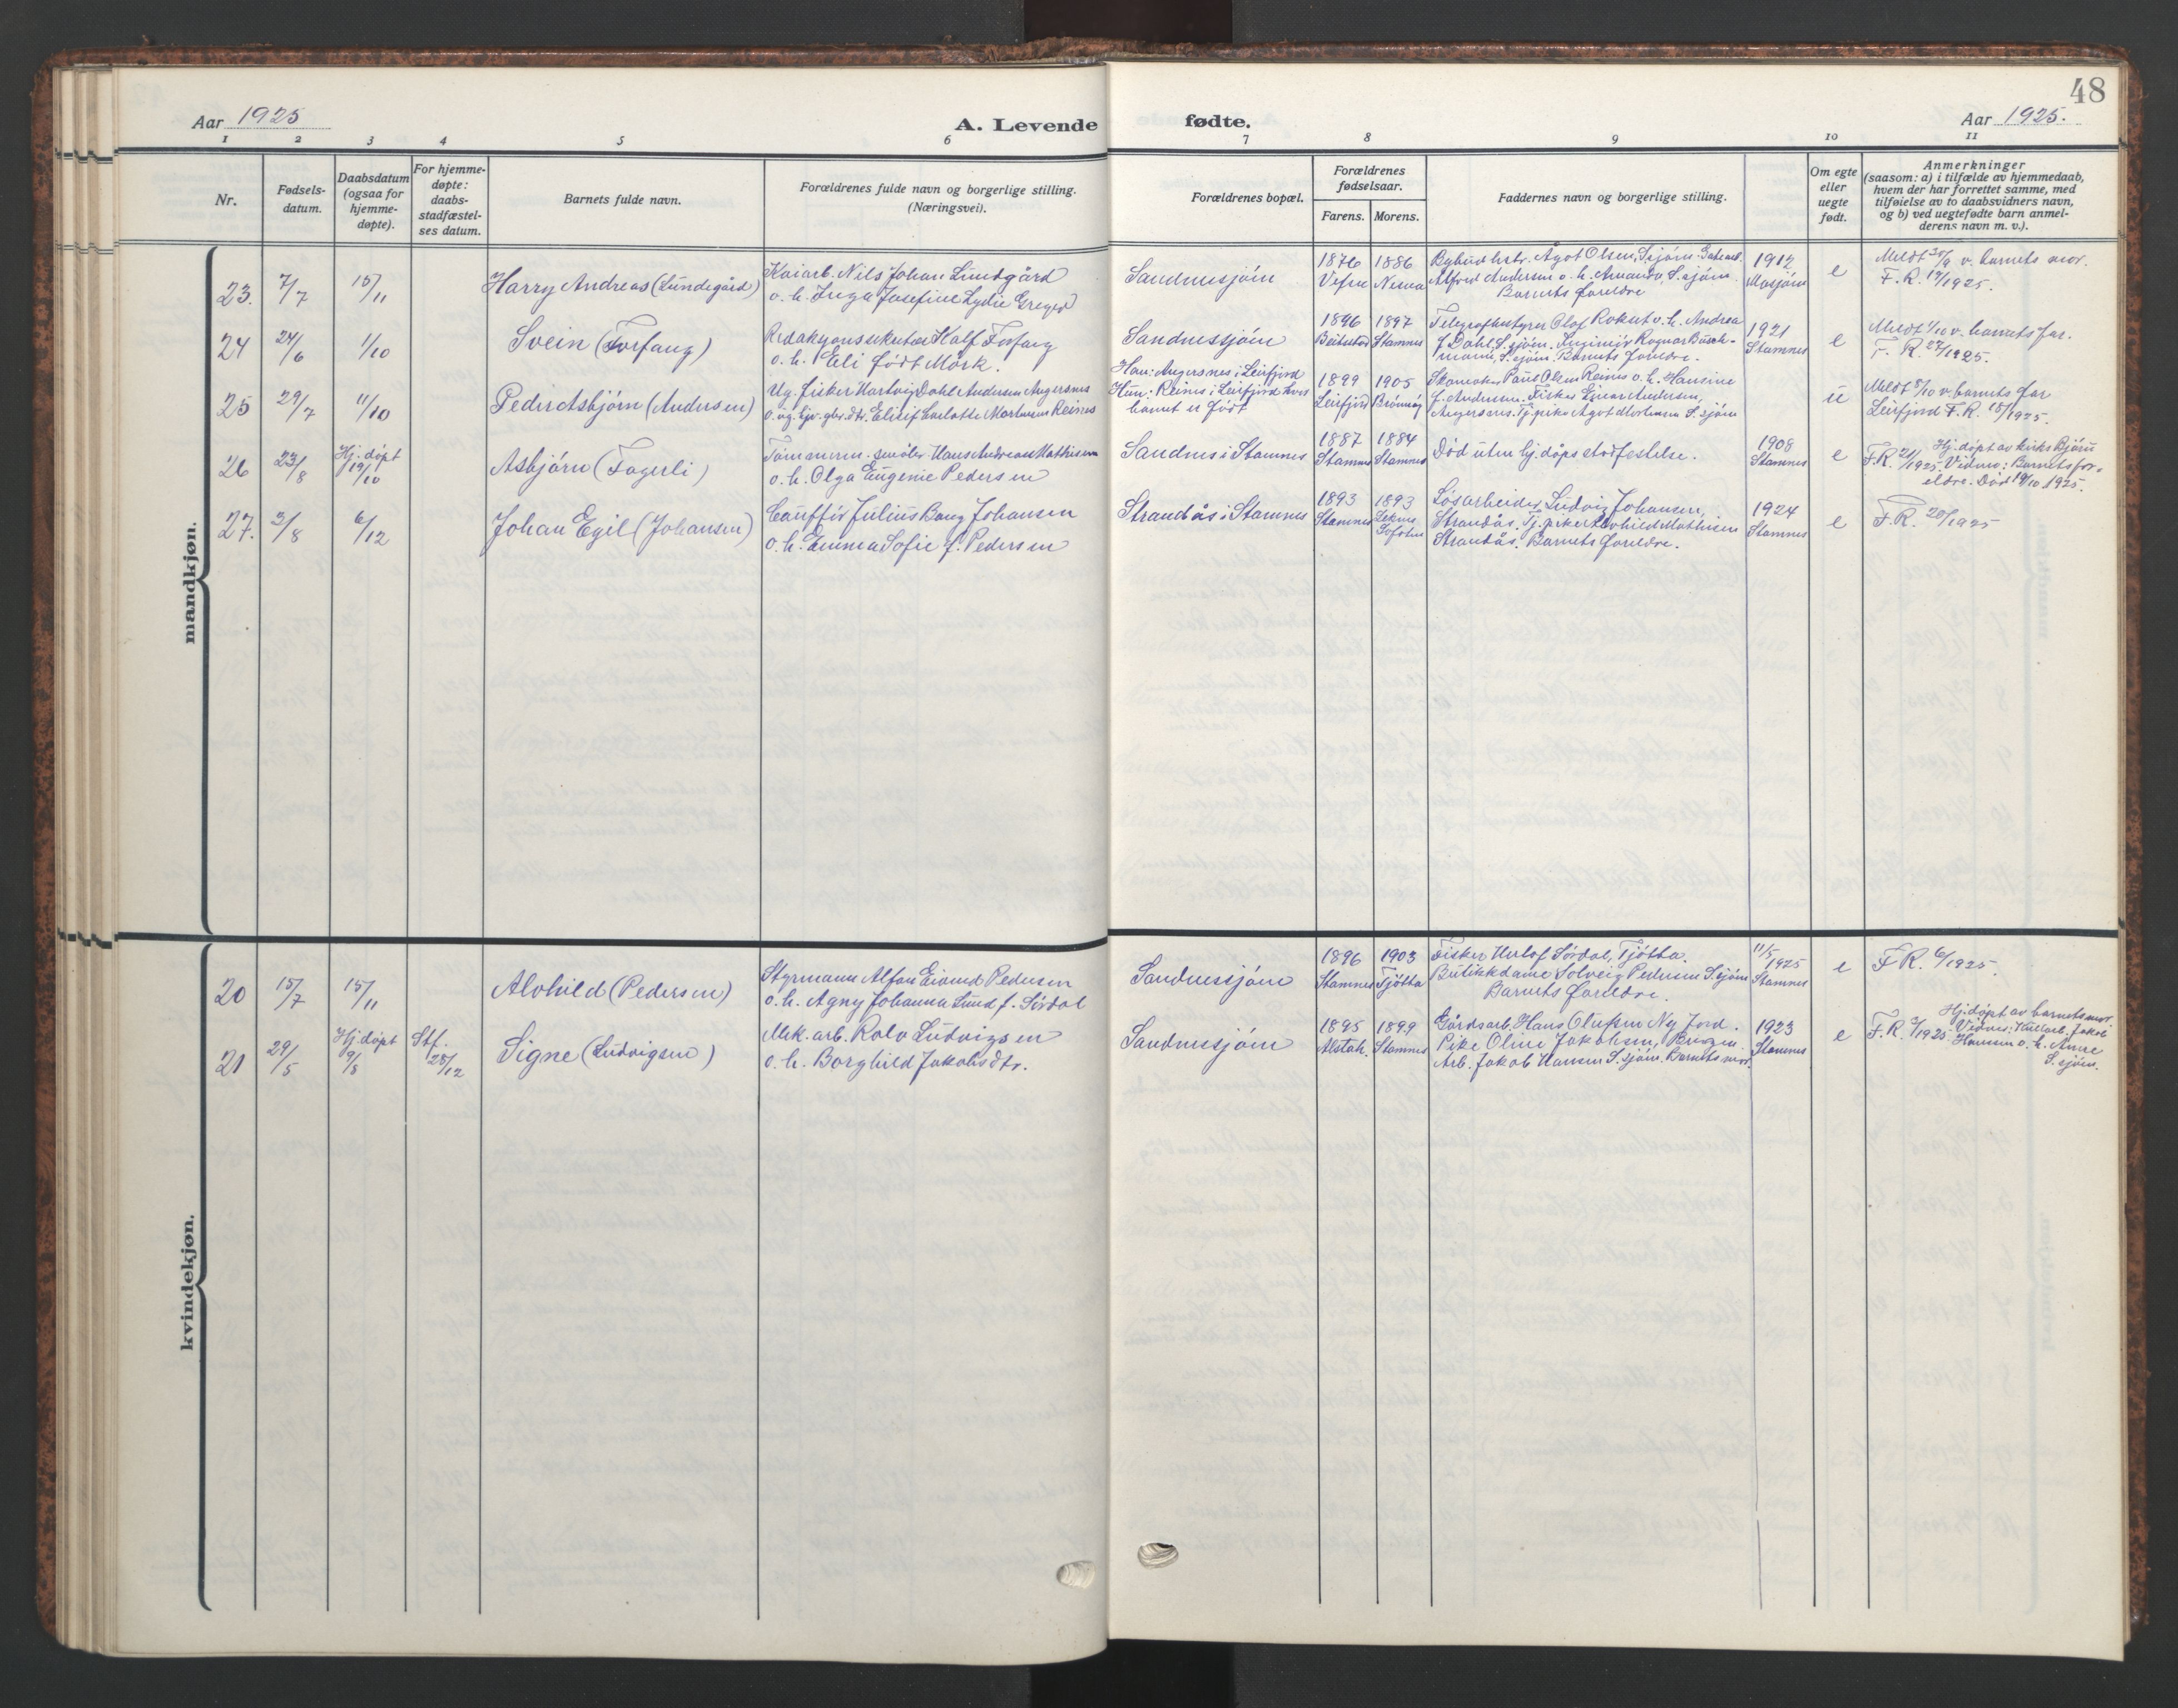 48
Aar 1925
A. Levende
fødte.
Aar 1925.
1 2 3 4 5 6 7 8 9 10 11
Nr.
Fødsels-
datum.
Daabsdatum
(ogsaa for
hjemme-
døpte).
For hjemme-
døpte:
daabs-
stadfæstel-
ses datum.
Barnets fulde navn.
Forældrenes fulde navn og borgerlige stilling.
(Næringsvei).
Forældrenes bopæl.
Forældrenes
fødselsaar.
Farens. Morens.
Faddernes navn og borgerlige stilling.
Om egte
eller
uegte
født.
Anmerkninger
(saasom: a) i tilfælde av hjemmedaab,
hvem der har forrettet samme, med
tilføielse av to daabsvidners navn,
og b) ved uegtefødte barn anmel-
derens navn m. v.).
mandkjøn.
23. 7/7 15/11 Harry Andreas (Lundegård)
Kaiarb. Nils Johan Lundgård
o. h. Inga Josefine Lydie
Sandnessjøen
1876 1886
Vefsn Nesna
Ågot Olsen, S.sjøen.
Alfred Andersen o. h. Amanda, S.sjøen.
Barnets foreldre
1912
Mosjøen
e
Meldt 30/9 v. barnets mor.
F. R. 17/1925.
24 24/6 1/10 Svein (Forfang)
Redaksjonssekretær Half Forfang
o. h. Eli født Mørk.
Sandnessjøen
1896 1897
Beitstad Stamnes
Telegrafbestyrer Olaf Rokut o. h. Andrea
f. Dahl, S.sjøen. Ingeniør Ragnar Busch-
mann, S.sjøen. Barnets foreldre.
1921
Stamnes
e
Meldt 1/10 v. barnets far.
F. R. 27/1925.
25 29/7 11/10 Peder Asbjørn (Andersen)
Ug. fisker Hartvig Dahl Andersen Angersnes
o. ug. tjv. gbr.dtr. Elisif Charlotte Martinsen Reines
Han: Angersnes i Leirfjord
Hun: Reines i Leirfjord hvor
barnet er født
1899 1905
Leirfjord Brønnøy
Paul Olsen Reines o. h. Hansine
f. Andersen. Fisker Einar Andersen,
Angersnes. Tj.pike Ågot Mortensen S.sjøen
u
Meldt 8/10 v. barnets far
Leirfjord F. R. 18/1925.
26 23/8 Hj. døpt
19/10
Asbjørn (Fagerli)
Tømmerm. Hans Andreas Mathisen
o. h. Olga Eugenie Pedersen
Sandnes i Stamnes
1887 1884
Stamnes Stamnes
Død uten hj. dåps stadfestelse.
1908
Stamnes
e
F.R. 21/1925.
Hj. døpt av Bjørn
Vidner: Barnets for-
eldre. Død 19/10 1925.
27. 2/8 6/12 Johan Egil (Johansen)
Julius Bang Johansen
o. h. Emma Sofie f. Pedersen
Strandås i Stamnes
1893 1893
Stamnes
Lofoten
Løsarbeider Ludvig Johansen,
Strandås. Tj.piker Alvhild Mathisen
Strandås. Barnets foreldre.
1924
Stamnes
e
F.R. 20/1925
kvindekjøn.
20 15/7 15/11 Alvhild (Pedersen)
Styrmann Alfon Eivind Pedersen
o. h. Agny Johanna Lund f. Sørdal
Sandnessjøen
1896 1903
Stamnes Tjøtta
Fisker Herlof Sørdal, Tjøtta.
Butikkdame Solveig Pedersen S.sjøen
Barnets foreldre.
11/5
1925
Stamnes
e
F R. 6/1925.
21 29/5 Hj. døpt
9/8
Stf.
28/12
Signe (Ludvigsen)
Mek. arb. Rolv Ludvigsen
o. h. Borghild Jakobsdtr.
Sandnessjøen
1895 1899
Alstah. Stamnes
Gårdsarb. Hans Olufsen Ny Jord.
Pike Oline Jakobsen,
Arb. Jakob Hansen S.sjøen. Barnets mor.
1923
Stamnes
e
F. R. 3/1925
Hj. døpt av barnets mor.
Vidner: Kullarb. Jakob
Hansen o. h. Anne
S.sjøen.